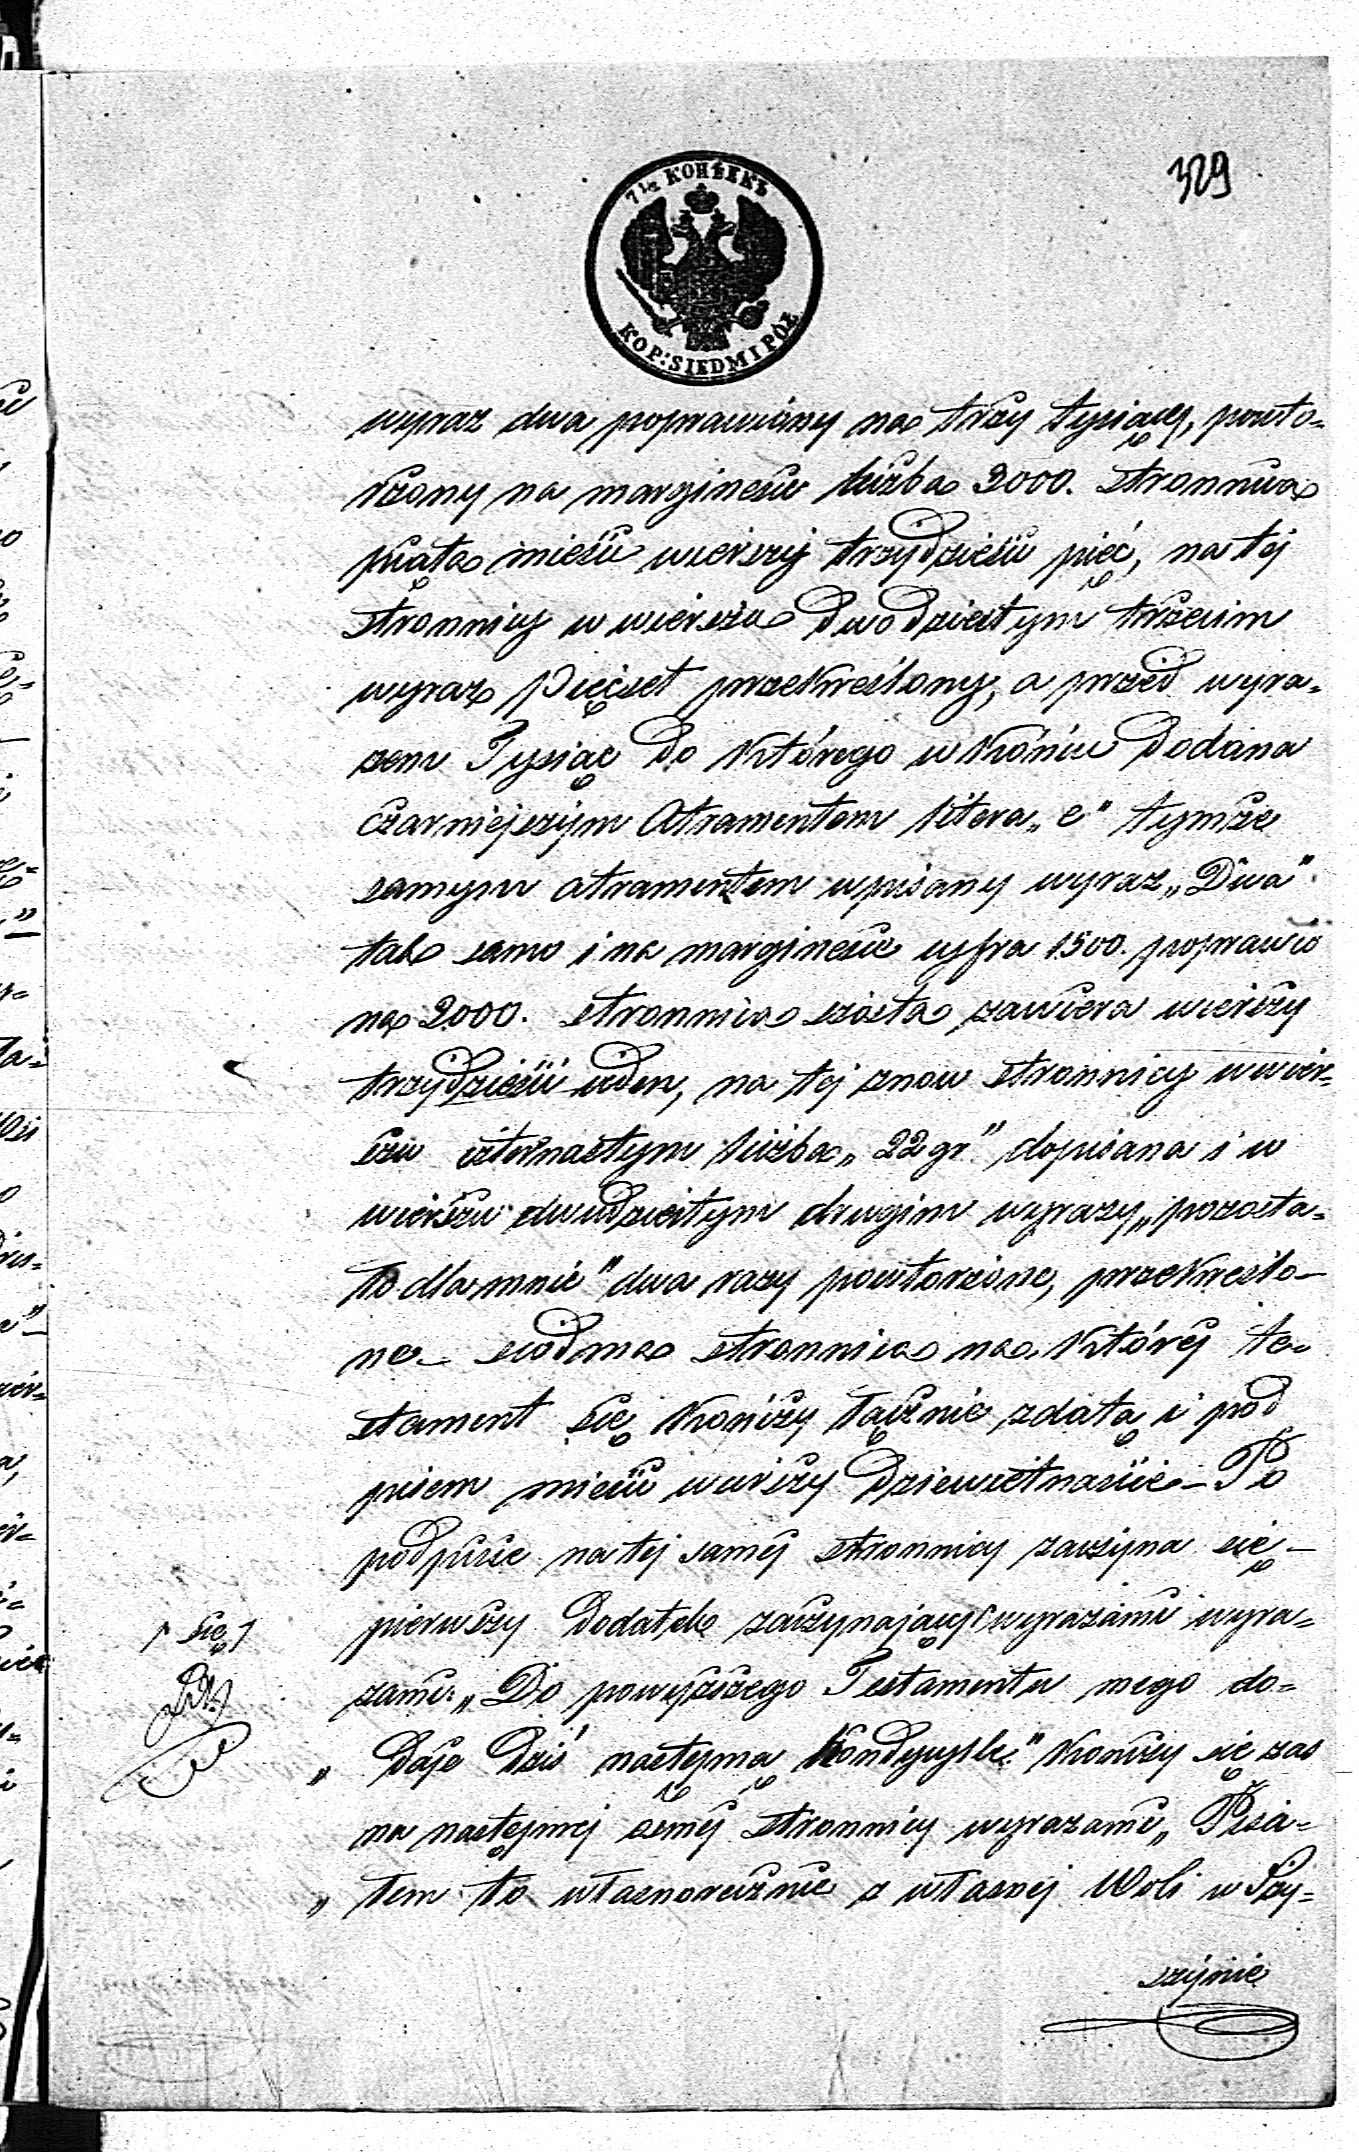 329
7½ КОПѢЕКЪ
KOP: SIEDM I PÓŁ
wyraz dwa poprawiony na trzy tysiące, powto-
rzony na marginesie liczba 3000. stronnica
piąta mieści wierszy trzydzieści pięć, na tej
stronnicy w wierszu dwudziestym trzecim
wyraz Pięćset przekreślony, a przed wyra-
zem Tysiąc do którego w końcu dodana
czarniejszym atramentem litera „e" tymże
samym atramentem wpisany wyraz „Dwa"
tak samo i na marginesie cyfra 1500. popraw
na 2000. stronnica szósta zawiera wierszy
trzydzieści jeden, na tej znow stronnicy w wier-
szu czternastym liczba „22 gr" dopisana i w
wierszu dwudziestym drugim wyrazy „pozosta-
ło dla mnie" dwa razy powtorzone, przekreślo-
ne – siodma stronnica na której te-
stament się kończy łącznie z datą i pod
pisem mieści wierszy dziewiętnaście – Po
podpisie na tej samej stronnicy zaczyna się –
pierwszy dodatek zaczynający wyrazami wyra-
zami: „Do powyższego Testamentu mego do-
„ daje Dziś następną kondycyyle." kończy się zas
na następnej osmej stronnicy wyrazami „Pisa-
„ łem to własnorecznie z własnej Woli w Szy-
szynie
się